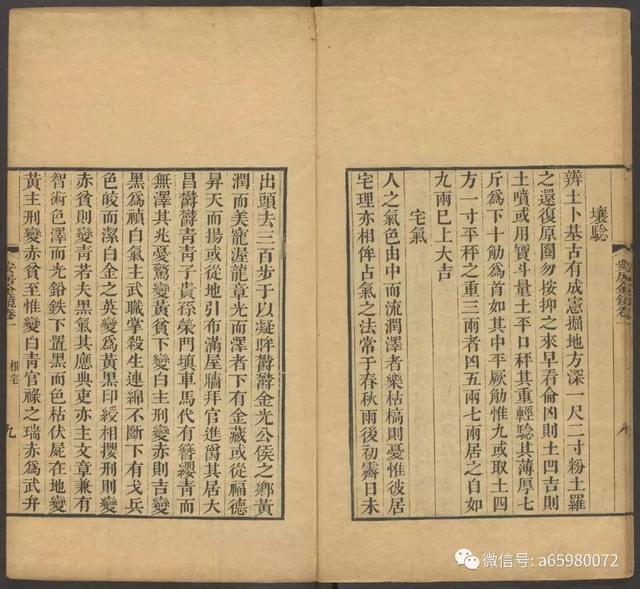 壤騐
辨土卜基古有成憲掘地方深一尺二寸粉土羅
之還復原圈勿按抑之來早看侖凶則土凹吉則
土噴或用寳斗量土平口秤其重輕騐其薄厚七
斤爲下十觔爲首如其中平厥觔惟九或取土四
方一寸平秤之重三兩者凶五兩七兩居之自如
九兩巳上大吉
宅氣
人之氣色由中而流潤澤者樂枯槁則憂惟彼居
宅理亦相侔占氣之法常于春秋雨後初霽日未
出頭去三百步于以凝眸欝欝金光公侯之鄉黃
潤而美寵渥龍章光而澤者下有金藏或從福德
昇天而揚或從地引布滿屋牆拜官進爵其居大
昌欝欝青青子貴孫榮門填車馬代有簪纓青而
無澤其兆憂驚變黃貧下變白主刑變赤則吉變
黑爲禎白氣主武職掌殺生連綿不斷下有戈兵
色皎而潔白金之英變爲黃黑印綬相攖刑則變
赤貧則變青若夫黑氣其應典吏亦主文章兼有
智術色澤而光鉛鉄下置黑而色枯伏屍在地變
黃主刑變赤貧至惟變白青官祿之瑞赤爲武弁
安居金鏡卷一 相宅 九
微信号: a65980072